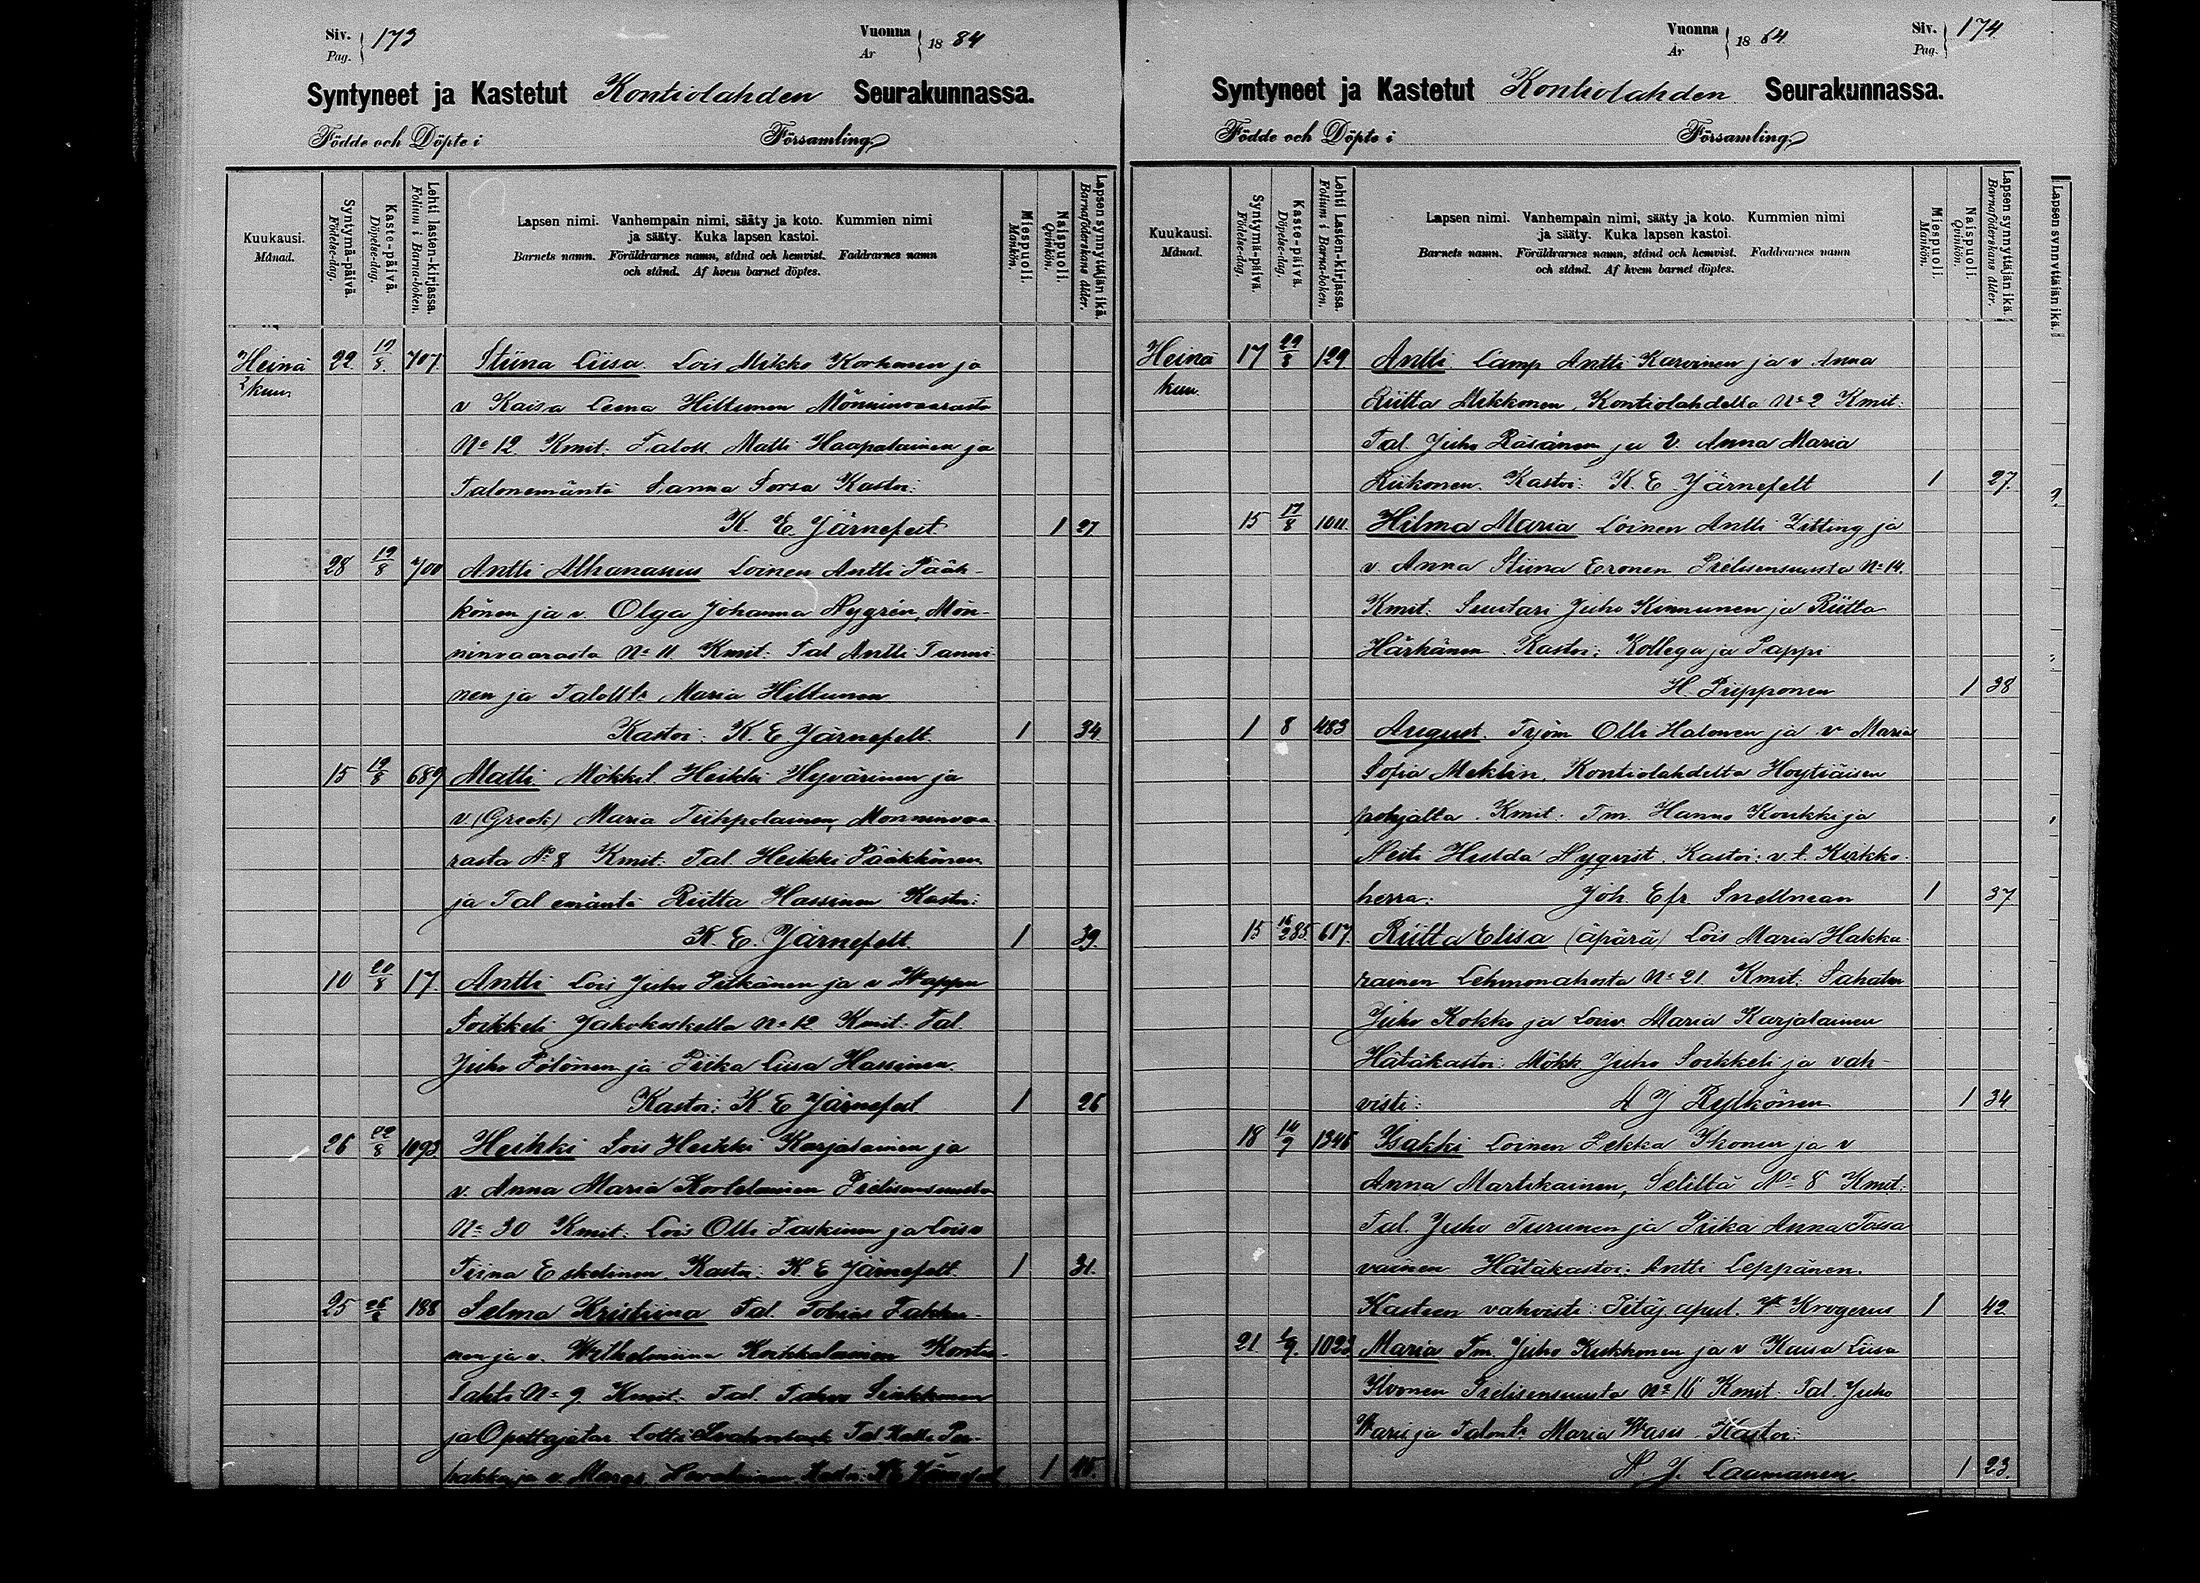 Siv. Pag. 173 Vuonna År 1884
Syntyneet ja Kastetut Kontiolahden Seurakunnassa.
Födde och Döpte i Församling
Kuukausi. Månad.
Syntymä-päivä. Födelse-dag.
Kaste-päivä. Döpelse-dag.
Lehti lasten-kirjassa. Folium i Barna-boken.
Lapsen nimi. Vanhempain nimi, sääty ja koto. Kummien nimi
ja sääty. Kuka lapsen kastoi.
Barnets namn. Föräldrarnes namn, stånd och hemvist. Faddrarnes namn
och stånd. Af hvem barnet döptes.
Miespuoli. Mankön.
Naispuoli. Qvinkön.
Lapsen synnyttäjän ikä. Barnaföderskans ålder.
Heinä 22 19/8 707 Stiina Liisa. Lois Mikko Korhonen ja
kuu v Kaisa Leena Hiltunen Mönninvaarasta
No 12 Kmit: Taloll Matti Haapalainen ja
Talonemäntä Sanna Sorsa Kastoi:
K. E. Järnefelt. 1 27
28 19/8 700 Antti Athanasius Loinen Antti Pääk-
könen ja v. Olga Johanna Nygrén, Mön-
ninvaarasta No 11 Kmit: Tal Antti Tanni-
nen ja Talollt. Maria Hiltunen
Kastoi: K. E. Järnefelt. 1 34
15 19/8 689 Matti Mökkil Heikki Hyvärinen ja
v. (Greek) Maria Tiihpolainen, Monninvaa-
rasta No 8 Kmit: Tal. Heikki Pääkkönen
ja Tal emäntä Riitta Hassinen Kastoi:
K. E. Järnefelt. 1 39.
10 20/8 17. Antti Lois Juho Pitkänen ja v Wappu
Soikkeli Jakokoskella No 12 Kmit: Tal
Juho Pölönen ja Piika Liisa Hassinen.
Kastoi: K E Järnefelt 1 26
26 22/8 1093 Heikki Lois Heikki Karjalainen ja
v. Anna Maria Kortelainen Pielisensuusta
No 30 Kmit: Lois Olli Taskinen ja Lois v
Tiina Eskelinen. Kastoi: K E Järnefelt. 1 31.
25 188 Selma Kristiina Tal. Tobias
nen ja v. Wilhelmiina Kontio-
lahti No 9. Kmit: Tal.
ja Opettajatar Lotta Tal Kalle
ja v. Kastoi: K E Järnefelt 1
Vuonna År 1884. Siv. Pag. 174.
Syntyneet ja Kastetut Kontiolahden Seurakunnassa.
Födde och Döpte i Församling
Kuukausi. Månad.
Syntymä-päivä. Födelse-dag.
Kaste-päivä. Döpelse-dag.
Lehti Lasten-kirjassa. Folium i Barna-boken.
Lapsen nimi. Vanhempain nimi, sääty ja koto. Kummien nimi
ja sääty. Kuka lapsen kastoi.
Barnets namn. Föräldrarnes namn, stånd och hemvist. Faddrarnes namn
och stånd. Af hvem barnet döptes.
Miespuoli. Mankön.
Naispuoli. Qvinkön.
Lapsen synnyttäjän ikä. Barnaföderskans ålder.
Heinä 17 29/8 129 Antti Lamp Antti Karvinen ja v. Anna
kuu. Riitta Mikkonen, Kontiolahdella No 2 Kmit:
Tal Juho Räsänen ja V. Anna Maria
Riikonen. Kastoi: K. E. Järnefelt 1 27.
15 17/8 1011. Hilma Maria Loinen Antti Zitting ja
v. Anna Stiina Eronen Pielisensuusta No 14.
Kmit: Suutari Juho Kinnunen ja Riitta
Härkänen. Kastoi: Kollega ja Pappi
H. Piipponen 1 38
1 8 483 August. Työm Olli Halonen ja v Maria
Sofia Meklin, Kontiolahdelta Höytiäisen
pohjalta. Kmit. Tm. Hannu Konkki ja
Neiti Hulda Nyqvist. Kastoi: v. t. Kirkko-
herra: Joh. Efr. Snellman 1 37
15 16/2 85 617. Riitta Elisa (äpärä) Lois Maria Hakka-
rainen Lehmonahosta No 21. Kmit:
Juho Kokko ja Loisv. Maria Karjalainen
Hätäkastoi: Mökk Juho Soikkeli ja vah-
visti: A J Rytkönen 1 34
18 14/9 1345 Isakki Loinen Pekka Ikonen ja v
Anna Martikainen, Seliltä No 8 Kmit:
Tal. Juho Turunen ja Piika Anna Tossa-
vainen Hätäkastoi: Antti Leppänen.
Kasteen vahvisti: Pitäj apul. Krogerus 1 42
21 1023 Maria Tm. Juho Kukkonen ja v Kaisa Liisa
Pielisensuusta No 16 Kmit: Tal. Juho
Waris ja Talont. Maria Waris. Kastoi:
A. J. Laamanen. 1 23.
Lapsen synnyttäjän ikä.